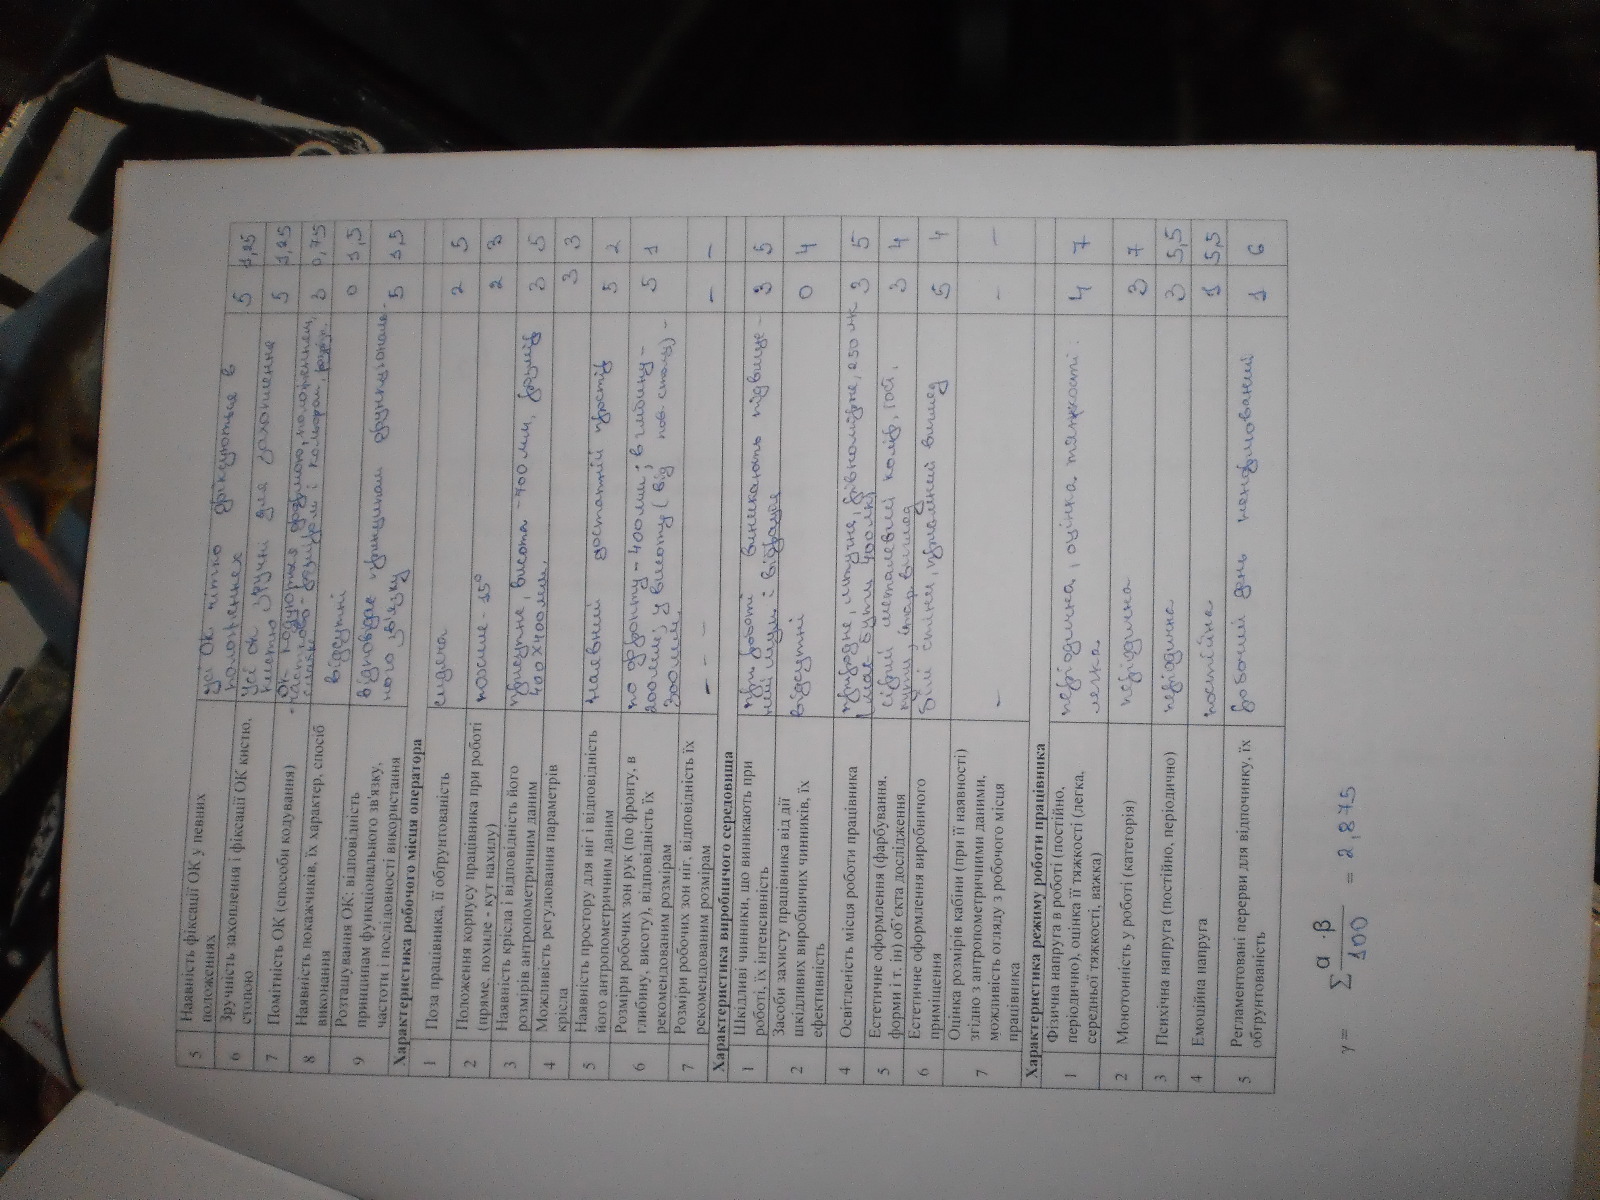 5 Наявність фіксації ОК у певних положеннях усі ОК чітко фіксуються в положеннях 5 1,25
6 Зручність захоплення і фіксації ОК кистю, стопою Усі ОК зручні для захоплення кистю 5 1,25
7 Помітність ОК (способи кодування) ОК кодуються формою, положенням, частково - розміром і кольором, 3 0,75
8 Наявність покажчиків, їх характер, спосіб виконання відсутні 0 1,5
9 Розташування ОК: відповідність принципам функціонального зв'язку, частоти і послідовності використання відповідає принципам функціонального зв'язку 5 1,5
Характеристика робочого місця оператора
1 Поза працівника, її обґрунтованість сидяча 2 5
2 Положення корпусу працівника при роботі (пряме, похиле - кут нахилу) похиле - 15° 2 3
3 Наявність крісла і відповідність його розмірів антропометричним даним присутнє, висота - 700 мм, розмір 400х400мм. 3 5
4 Можливість регулювання параметрів крісла 3 3
5 Наявність простору для ніг і відповідність його антропометричним даним наявний достатній простір 5 2
6 Розміри робочих зон рук (по фронту, в глибину, висоту), відповідність їх рекомендованим розмірам по фронту - 400мм; в глибину - 200мм; у висоту (від пов. столу) - 300мм. 5 1
7 Розміри робочих зон ніг, відповідність їх рекомендованим розмірам - - - - -
Характеристика виробничого середовища
1 Шкідливі чинники, що виникають при роботі, їх інтенсивність при роботі виникають підвищені шуми і вібрація 3 5
2 Засоби захисту працівника від дії шкідливих виробничих чинників, їх ефективність відсутні 0 4
4 Освітленість місця роботи працівника природне, штучне, рівномірне, 250 лк (має бути 400лк) 3 5
5 Естетичне оформлення (фарбування, форми і т. ін) об'єкта дослідження сірий металевий колір, 3 4
6 Естетичне оформлення виробничого приміщення білі стіни, приємний вигляд 5 4
7 Оцінка розмірів кабіни (при її наявності) згідно з антропометричними даними, можливість огляду з робочого місця працівника - - -
Характеристика режиму роботи працівника
1 Фізична напруга в роботі (постійно, періодично), оцінка її тяжкості (легка, середньої тяжкості, важка) періодична, оцінка тяжкості: легка 4 7
2 Монотонність у роботі (категорія) періодична 3 7
3 Психічна напруга (постійно, періодично) періодична 3 5,5
4 Емоційна напруга постійна 1 5,5
5 Регламентовані перерви для відпочинку, їх обґрунтованість робочий день ненормований 1 6
γ = Σ α · β / 100 = 2,875